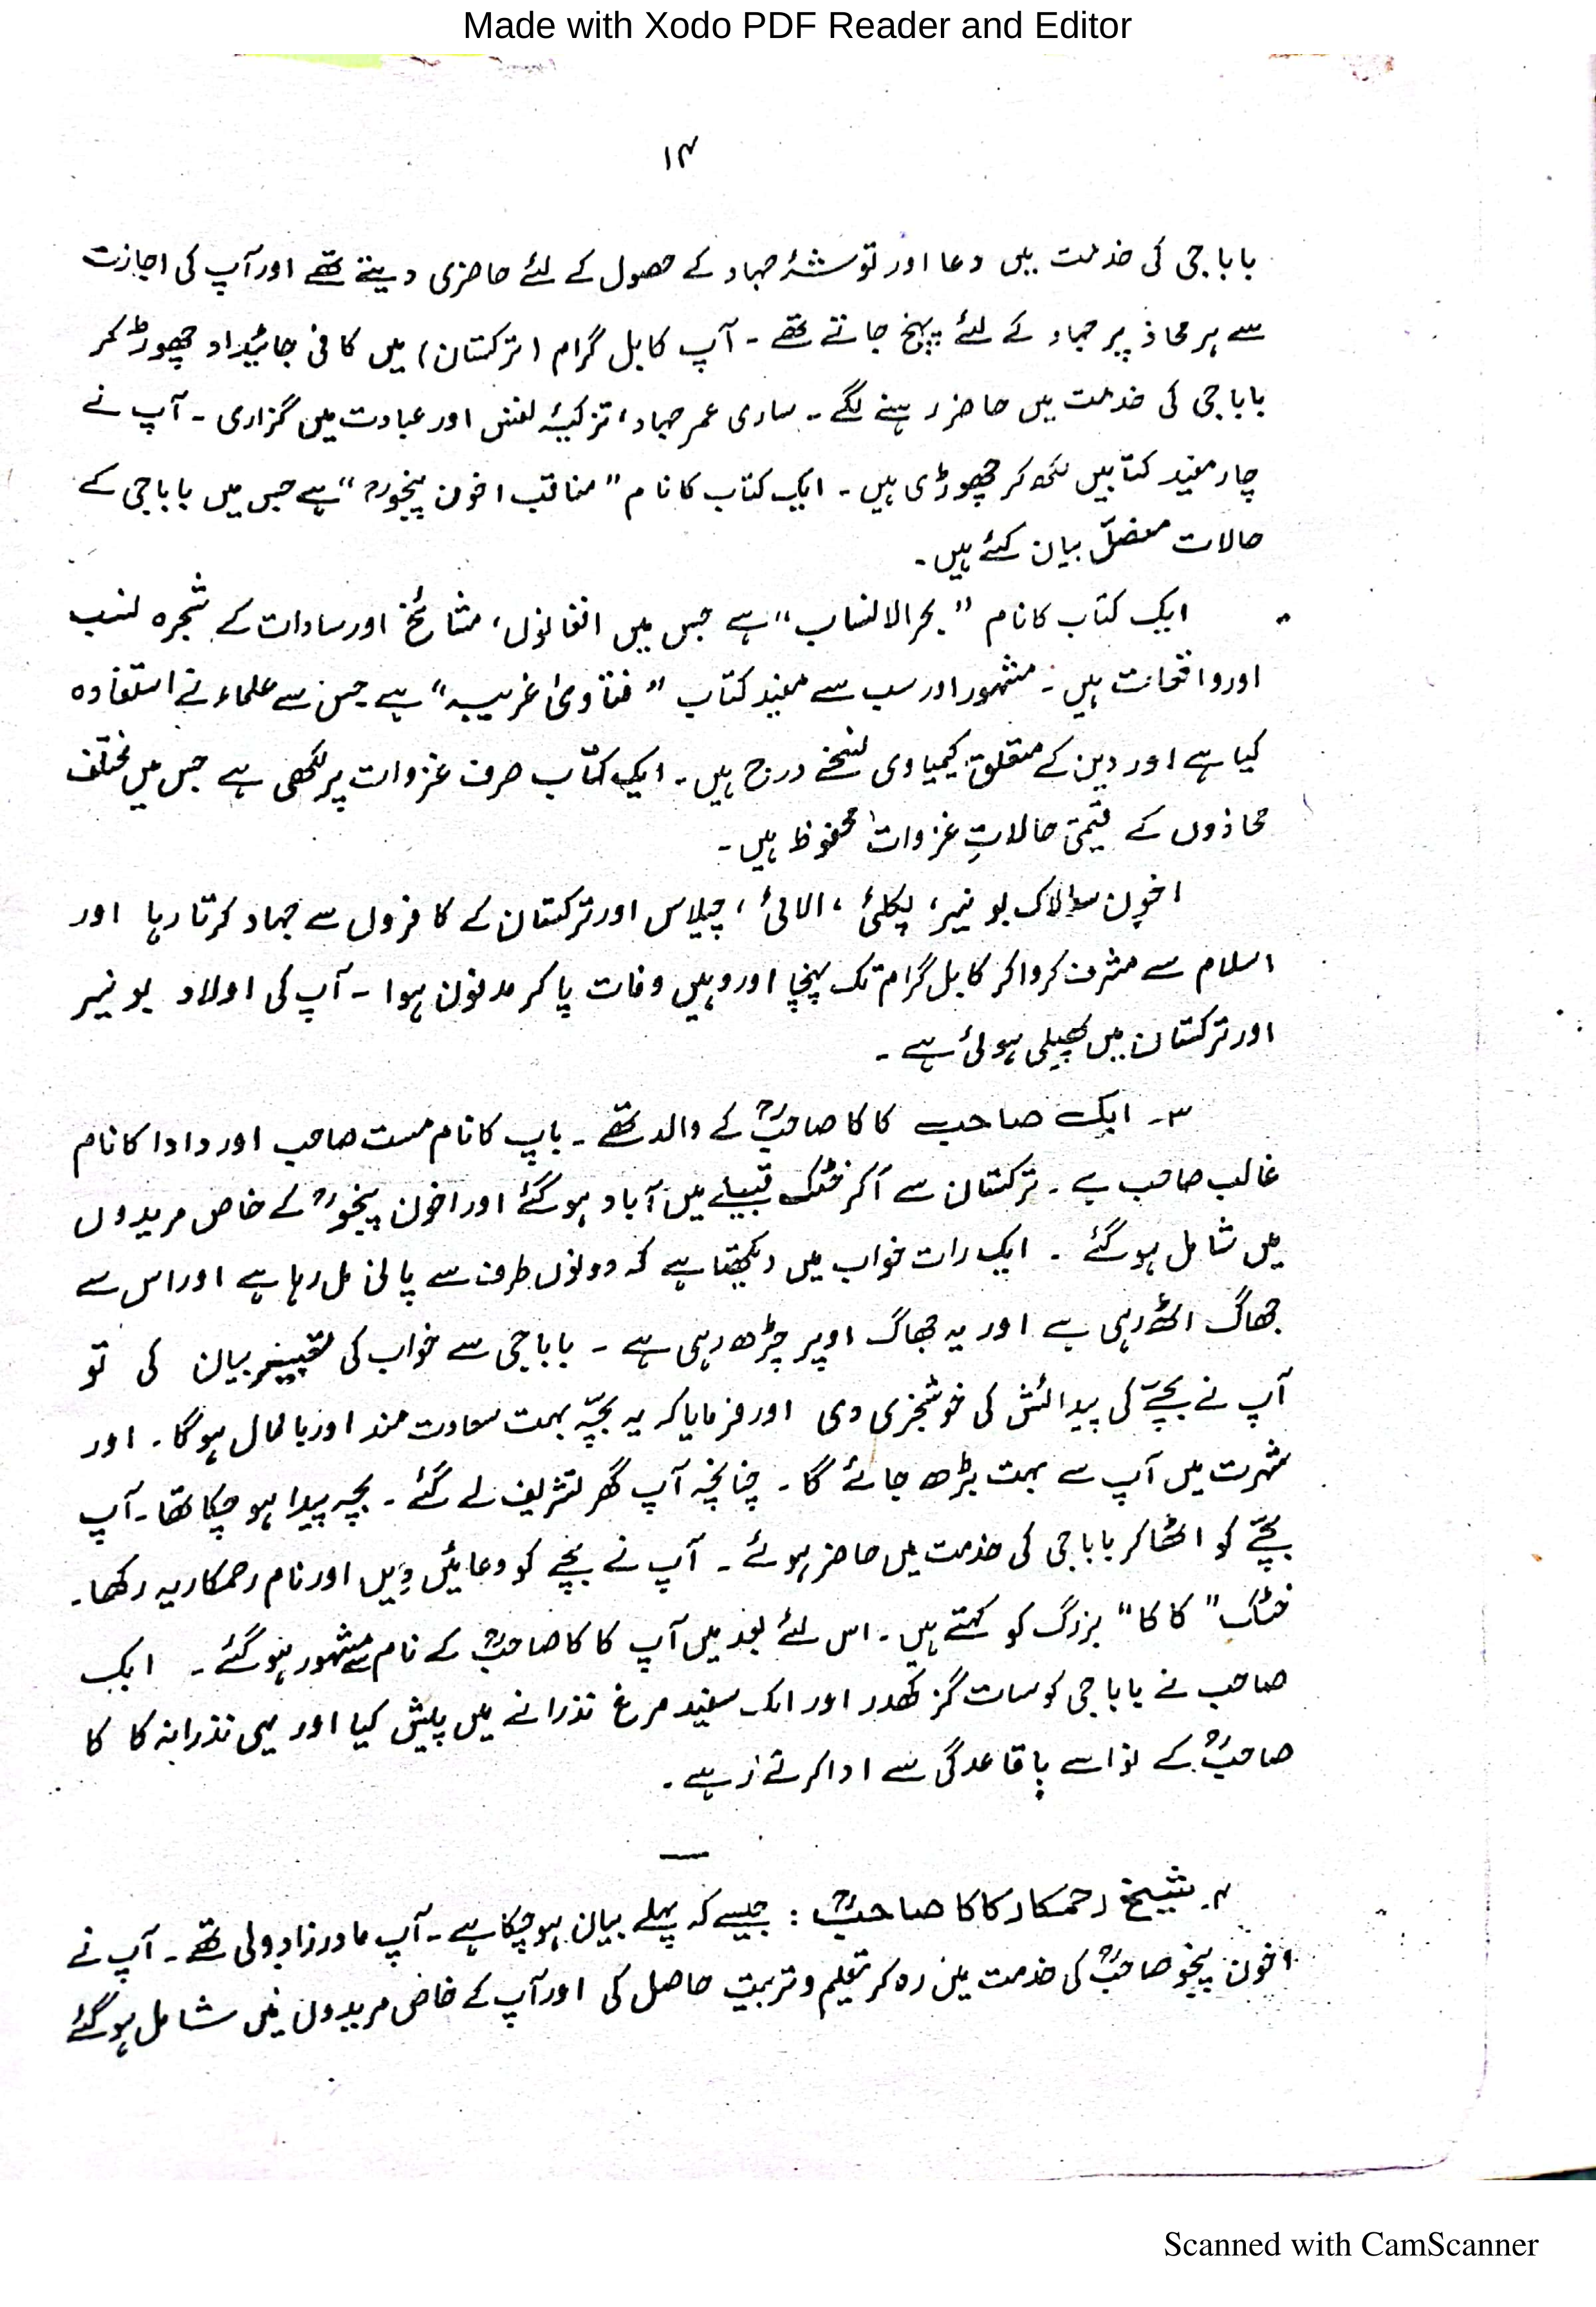 Made with Xodo PDF Reader and Editor
۱۴
بابا جی کی خدمت میں دعا اور توشۂ جہاد کے حصول کے لئے حاضری دیتے تھے اور آپ کی اجازت
سے ہر محاذ پر جہاد کے لئے پہنچ جاتے تھے ۔ آپ کابل گرام (ترکستان) میں کافی جائیداد چھوڑ کر
بابا جی کی خدمت میں حاضر رہنے لگے ۔ ساری عمر جہاد، تزکیۂ نفس اور عبادت میں گزاری ۔ آپ نے
چار مفید کتابیں لکھ کر چھوڑی ہیں ۔ ایک کتاب کا نام ”مناقب اخون پنجوؒ“ ہے جس میں بابا جی کے
حالات مفصّل بیان کئے ہیں ۔
ایک کتاب کا نام ”بحر الانساب“ ہے جس میں افغانوں، مشائخ اور سادات کے شجرہ نسب
اور واقعات ہیں ۔ مشہور اور سب سے مفید کتاب ”فتاویٰ غریبیہ“ ہے جس سے علماء نے استفادہ
کیا ہے اور دین کے متعلق کیمیاوی نسخے درج ہیں ۔ ایک کتاب صرف غزوات پر لکھی ہے جس میں مختلف
محاذوں کے قیمتی حالاتِ غزوات محفوظ ہیں ۔
اخون سالاک بونیر، پکلئ، الائی، چیلاس اور ترکستان کے کافروں سے جہاد کرتا رہا اور
اسلام سے مشرف کروا کر کابل گرام تک پہنچا اور وہیں وفات پا کر مدفون ہوا ۔ آپ کی اولاد بونیر
اور ترکستان میں پھیلی ہوئی ہے ۔
۳۔ ایک صاحب کاکا صاحبؒ کے والد تھے ۔ باپ کا نام مست صاحب اور دادا کا نام
غالب صاحب ہے ۔ ترکستان سے آکر خٹک قبیلے میں آباد ہو گئے اور اخون پنجوؒ کے خاص مریدوں
میں شامل ہو گئے ۔ ایک رات خواب میں دیکھتا ہے کہ دونوں طرف سے پانی مل رہا ہے اور اس سے
جھاگ اٹھ رہی ہے اور یہ جھاگ اوپر چڑھ رہی ہے ۔ بابا جی سے خواب کی تعبیر بیان کی تو
آپ نے بچّے کی پیدائش کی خوشخبری دی اور فرمایا کہ یہ بچّہ بہت سعادت مند اور باکمال ہو گا ۔ اور
شہرت میں آپ سے بہت بڑھ جائے گا ۔ چنانچہ آپ گھر تشریف لے گئے ۔ بچہ پیدا ہو چکا تھا ۔ آپ
بچّے کو اٹھا کر بابا جی کی خدمت میں حاضر ہوئے ۔ آپ نے بچے کو دعائیں دِیں اور نام رحمکاریہ رکھا ۔
خٹک ”کاکا“ بزرگ کو کہتے ہیں ۔ اس لئے بعد میں آپ کاکا صاحبؒ کے نام سے مشہور ہو گئے ۔ ایک
صاحب نے بابا جی کو سات گز کھدر اور ایک سفید مرغ نذرانے میں پیش کیا اور یہی نذرانہ کاکا
صاحبؒ کے نواسے باقاعدگی سے ادا کرتے رہے ۔
۴۔ شیخ رحمکار کاکا صاحبؒ : جیسے کہ پہلے بیان ہو چکا ہے ۔ آپ مادرزاد ولی تھے ۔ آپ نے
اخون پنجو صاحبؒ کی خدمت میں رہ کر تعلیم و تربیت حاصل کی اور آپ کے خاص مریدوں میں شامل ہو گئے
Scanned with CamScanner